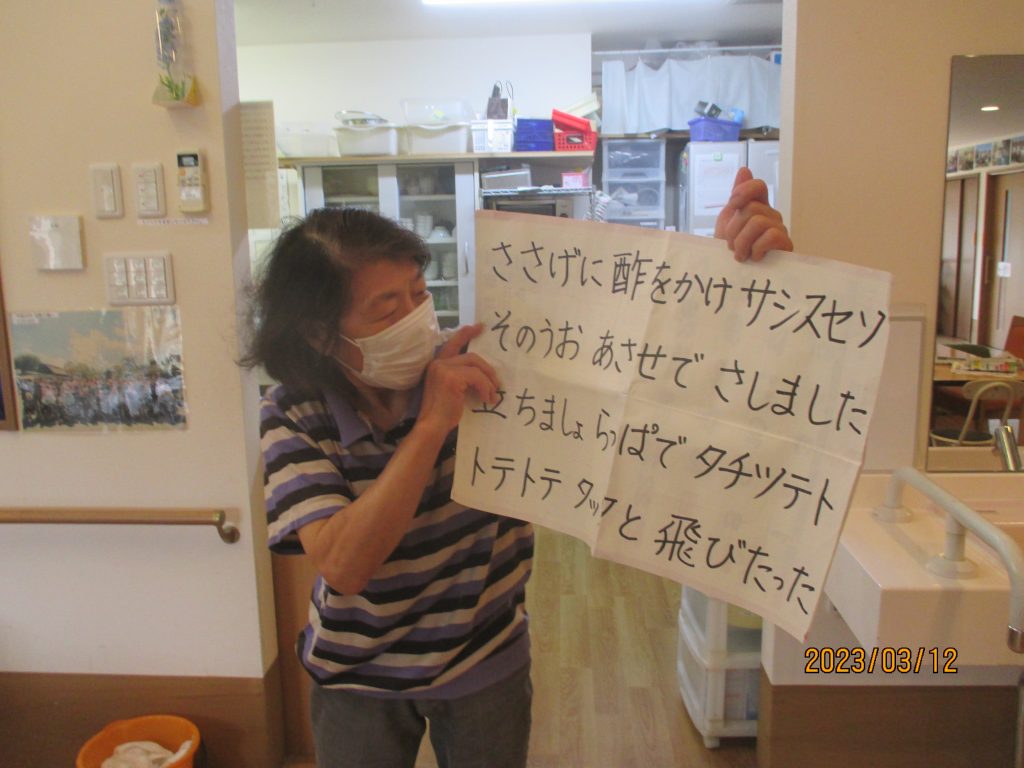 ささげに 酢をかけ サシスセソ
そのうお あさせで さしました
立ちましょ らっぱで タチツテト
トテトテ タッタと 飛びたった
2023/03/12